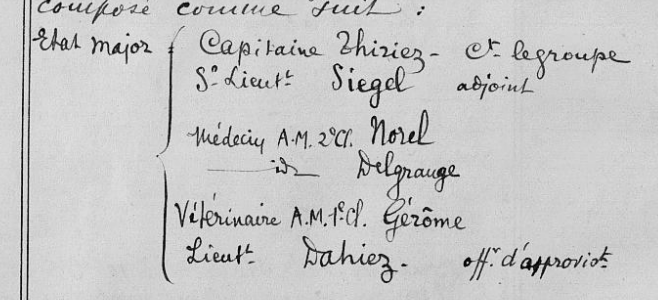 composé comme suit :
Etat major Capitaine Thiriez - Ct le groupe
Ss Lieutt Siegel adjoint
Médecin A.M. 2e Cl. Norel
id Delgrange
Vétérinaire A.M. 1e Cl. Gérôme
Lieutt Dahiez - offr d'approvt